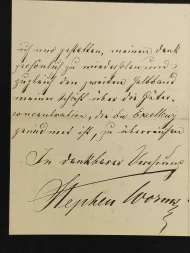 mir gestatten, meinen Dank
persönlich zu wiederholen und
zugleich den zweiten Halbband
meiner Schrift über die Güter-
concentration, die Ew. Excellenz
ist, zu überreichen
In dankbarer Verehrung
Stephen Worms